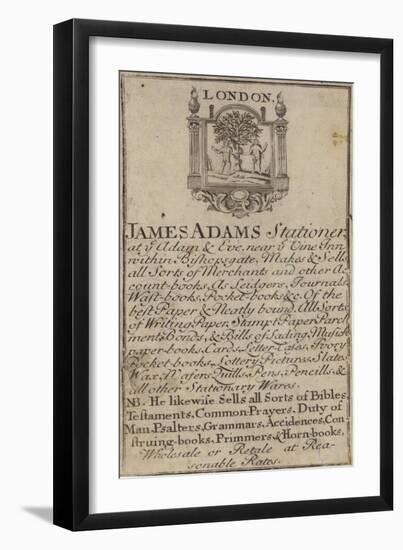 LONDON.
JAMES ADAMS Stationer
at ẏ Adam & Eve, near ẏ Vine Inn
within Bishopsgate, Makes & Sells
all Sorts of Merchants and other Ac
count-books, As Leidgers, Journals
Wast-books, Pocket-books &c. Of the
best Paper & Neatly bound. All Sorts
of Writing Paper, Stampt Paper Parch
ments Bonds, & Bills of Lading, Musick
paper-books, Cards, Letter-Cases, Ivory
Pocket-books, Lottery Pictures, Slates
Wax, Wafers, Quills, Pens, Pencills &
all other Stationary Wares.
NB. He likewise Sells all Sorts of Bibles,
Testaments, Common-Prayers, Duty of
Man, Psalters, Grammars, Accidences, Con
struing-books, Primmers & Horn-books,
Wholesale or Retale at Rea-
sonable Rates.